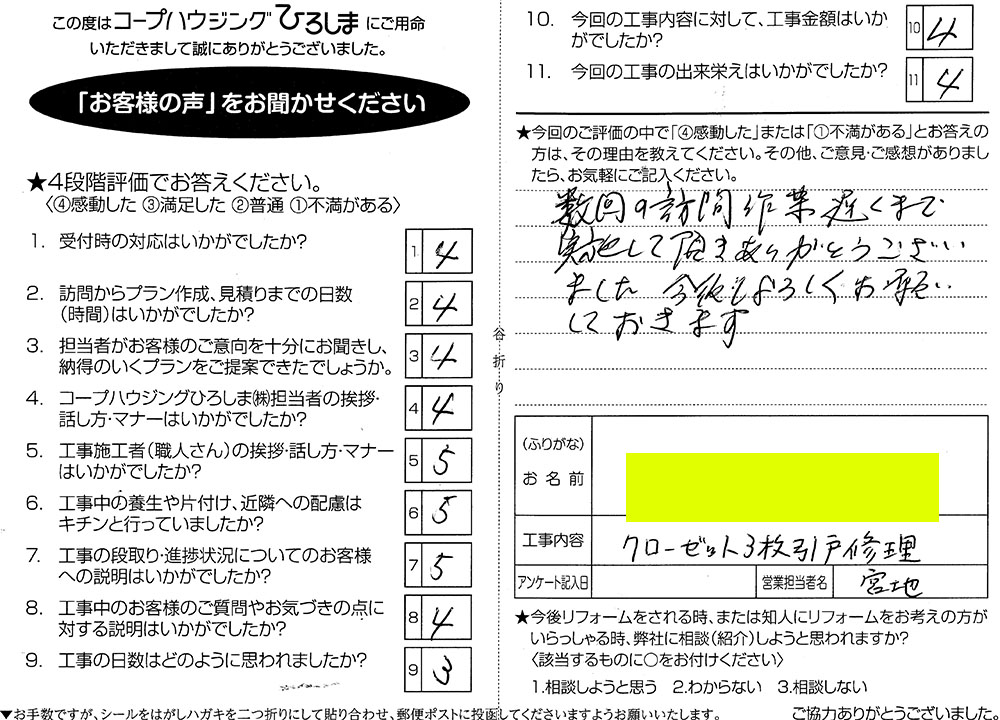 この度はコープハウジングひろしまにご用命
いただきまして誠にありがとうございました。
「お客様の声」をお聞かせください
★4段階評価でお答えください。
〈④感動した ③満足した ②普通 ①不満がある〉
1. 受付時の対応はいかがでしたか? 1 4
2. 訪問からプラン作成、見積りまでの日数
（時間）はいかがでしたか? 2 4
3. 担当者がお客様のご意向を十分にお聞きし、
納得のいくプランをご提案できたでしょうか。 3 4
4. コープハウジングひろしま㈱担当者の挨拶・
話し方・マナーはいかがでしたか? 4 4
5. 工事施工者（職人さん）の挨拶・話し方・マナー
はいかがでしたか? 5 5
6. 工事中の養生や片付け、近隣への配慮は
キチンと行っていましたか? 6 5
7. 工事の段取り・進捗状況についてのお客様
への説明はいかがでしたか? 7 5
8. 工事中のお客様のご質問やお気づきの点に
対する説明はいかがでしたか? 8 4
9. 工事の日数はどのように思われましたか? 9 3
▼お手数ですが、シールをはがしハガキを二つ折りにして貼り合わせ、郵便ポストに投函してくださいますようお願いいたします。
谷折り
10. 今回の工事内容に対して、工事金額はいか
がでしたか? 10 4
11. 今回の工事の出来栄えはいかがでしたか? 11 4
★今回のご評価の中で「④感動した」または「①不満がある」とお答えの
方は、その理由を教えてください。その他、ご意見・ご感想がありまし
たら、お気軽にご記入ください。
数回の訪問作業遅くまで
実施して頂きありがとうござい
ました 今後もよろしくお願い
しておきます
（ふりがな）
お名前
工事内容 クローゼット3枚引戸修理
アンケート記入日 営業担当者名 宮地
★今後リフォームをされる時、または知人にリフォームをお考えの方が
いらっしゃる時、弊社に相談（紹介）しようと思われますか?
〈該当するものに○をお付けください〉
1.相談しようと思う 2.わからない 3.相談しない
ご協力ありがとうございました。